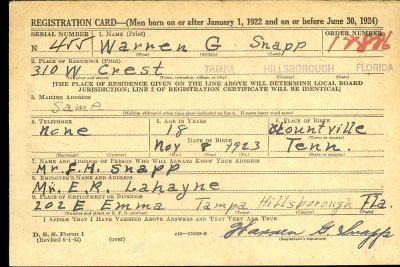 REGISTRATION CARD—(Men born on or after January 1, 1922 and on or before June 30, 1924)
SERIAL NUMBER 1. NAME (Print) ORDER NUMBER
N 455 Warren G Snapp
2. PLACE OF RESIDENCE (Print)
310 W Crest TAMPA HILLSBOROUGH FLORIDA
(Number and street) (Town, township, village, or city) (County) (State)
[THE PLACE OF RESIDENCE GIVEN ON THE LINE ABOVE WILL DETERMINE LOCAL BOARD
JURISDICTION; LINE 2 OF REGISTRATION CERTIFICATE WILL BE IDENTICAL]
3. MAILING ADDRESS
Same
(Mailing address if other than place indicated on line 2. If same insert word same)
4. TELEPHONE 5. AGE IN YEARS 6. PLACE OF BIRTH
None 18
DATE OF BIRTH
Nov 8 1923 Tenn.
(Exchange) (Number) (Mo.) (Day) (Yr.) (State or country)
7. NAME AND ADDRESS OF PERSON WHO WILL ALWAYS KNOW YOUR ADDRESS
Mr. E. H. Snapp
8. EMPLOYER'S NAME AND ADDRESS
Mr. E. R. Lahayne
9. PLACE OF EMPLOYMENT OR BUSINESS
202 E Emma Tampa Hillsborough Fla.
(Number and street or R. F. D. number) (Town) (County) (State)
I AFFIRM THAT I HAVE VERIFIED ABOVE ANSWERS AND THAT THEY ARE TRUE.
D. S. S. Form 1
(Revised 6-1-42) (over) Warren G. Snapp
(Registrant's signature)